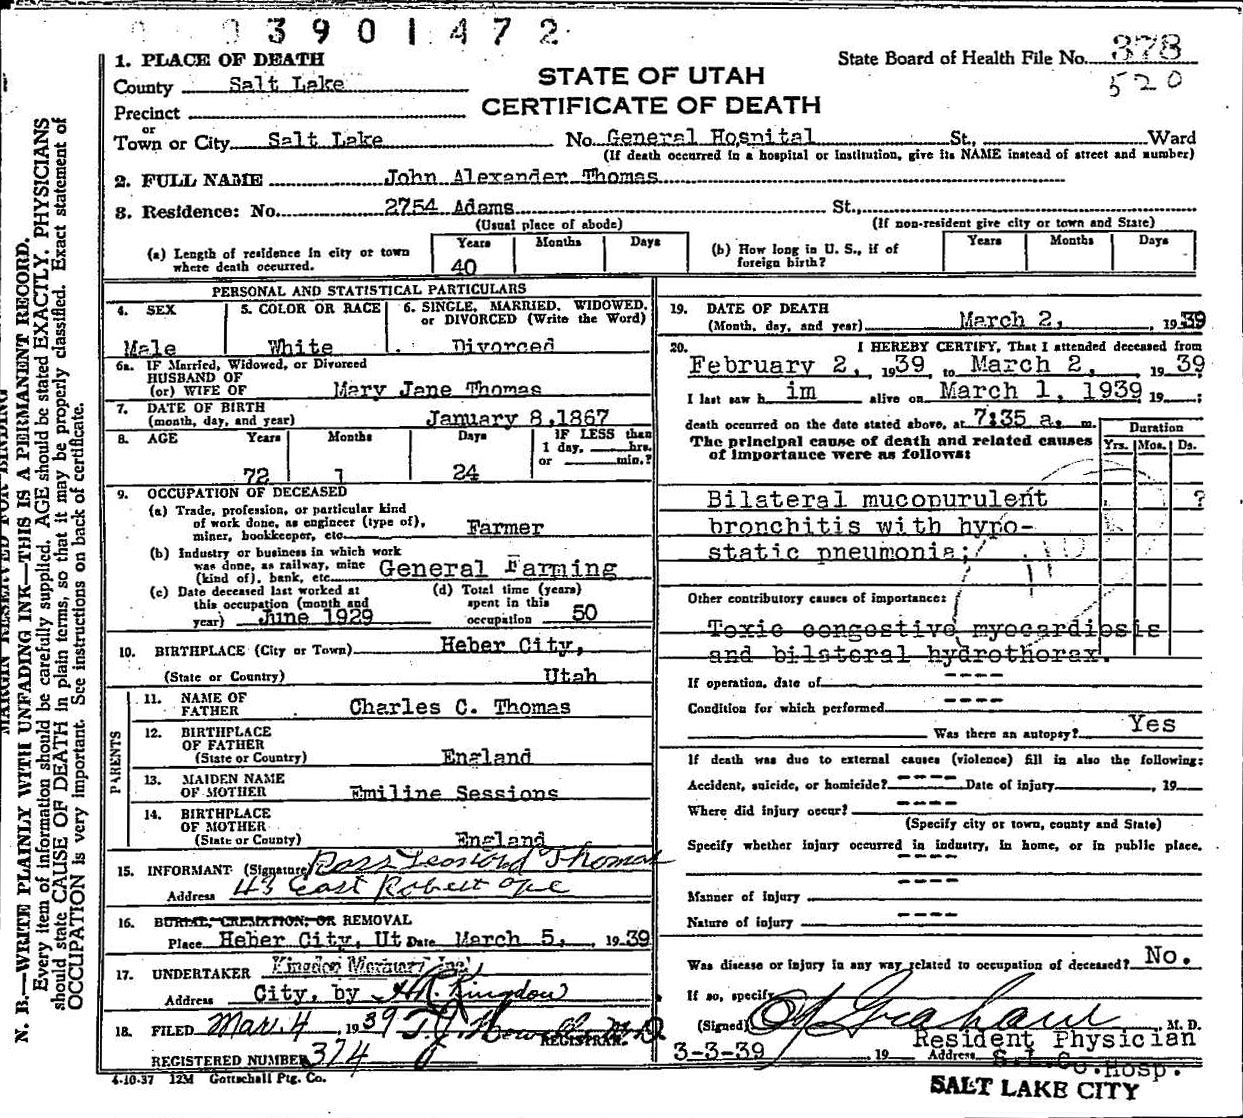 3901472
1. PLACE OF DEATH
State Board of Health File No. 378
520
County Salt Lake
STATE OF UTAH
CERTIFICATE OF DEATH
Precinct
or
Town or City Salt Lake No. General Hospital St., Ward
(If death occurred in a hospital or institution, give its NAME instead of street and number)
2. FULL NAME John Alexander Thomas
3. Residence: No. 2754 Adams St.,
(Usual place of abode) (If non-resident give city or town and State)
(a) Length of residence in city or town where death occurred. Years 40 Months Days
(b) How long in U. S., if of foreign birth? Years Months Days
PERSONAL AND STATISTICAL PARTICULARS
4. SEX Male
5. COLOR OR RACE White
6. SINGLE, MARRIED, WIDOWED, or DIVORCED (Write the Word) Divorced
6a. IF Married, Widowed, or Divorced
HUSBAND OF
(or) WIFE OF Mary Jane Thomas
7. DATE OF BIRTH
(month, day, and year) January 8, 1867
8. AGE Years 72 Months 1 Days 24
IF LESS than
1 day, hrs.
or min.?
9. OCCUPATION OF DECEASED
(a) Trade, profession, or particular kind
of work done, as engineer (type of),
miner, bookkeeper, etc. Farmer
(b) Industry or business in which work
was done, as railway, mine
(kind of), bank, etc. General Farming
(c) Date deceased last worked at
this occupation (month and
year) June 1929
(d) Total time (years)
spent in this
occupation 50
10. BIRTHPLACE (City or Town) Heber City,
(State or Country) Utah
PARENTS
11. NAME OF
FATHER Charles C. Thomas
12. BIRTHPLACE
OF FATHER
(State or Country) England
13. MAIDEN NAME
OF MOTHER Emiline Sessions
14. BIRTHPLACE
OF MOTHER
(State or County) England
15. INFORMANT (Signature) Thomas
Address 43 East Robert ave
16. BURIAL, CREMATION, OR REMOVAL
Place Heber City, Ut Date March 5, 1939
17. UNDERTAKER Kingdon Mortuary Inc
Address City, by Kingdon
18. FILED Mar. 4 1939 T. J. Howells M D
REGISTRAR.
REGISTERED NUMBER 374
4-10-37 12M Gottschall Ptg. Co.
19. DATE OF DEATH
(Month, day, and year) March 2, 1939
20. I HEREBY CERTIFY, That I attended deceased from
February 2, 1939 to March 2, 1939
I last saw h im alive on March 1, 1939 19 ;
death occurred on the date stated above, at 7:35 a. m.
The principal cause of death and related causes
of importance were as follows:
Duration
Yrs. Mos. Ds.
Bilateral mucopurulent ?
bronchitis with hypo-
static pneumonia;
Other contributory causes of importance:
Toxic congestive myocardiosis
and bilateral hydrothorax.
If operation, date of ----
Condition for which performed ----
Was there an autopsy? Yes
If death was due to external causes (violence) fill in also the following:
Accident, suicide, or homicide? ---- Date of injury , 19
Where did injury occur? ----
(Specify city or town, county and State)
Specify whether injury occurred in industry, in home, or in public place.
----
Manner of injury ----
Nature of injury ----
Was disease or injury in any way related to occupation of deceased? No.
If so, specify
(Signed) Graham M. D.
Resident Physician
3-3-39 19 Address S.L.Co.Hosp.
SALT LAKE CITY
MARGIN RESERVED FOR BINDING
N. B.—WRITE PLAINLY WITH UNFADING INK—THIS IS A PERMANENT RECORD.
Every item of information should be carefully supplied. AGE should be stated EXACTLY. PHYSICIANS
should state CAUSE OF DEATH in plain terms, so that it may be properly classified. Exact statement of
OCCUPATION is very important. See instructions on back of certificate.